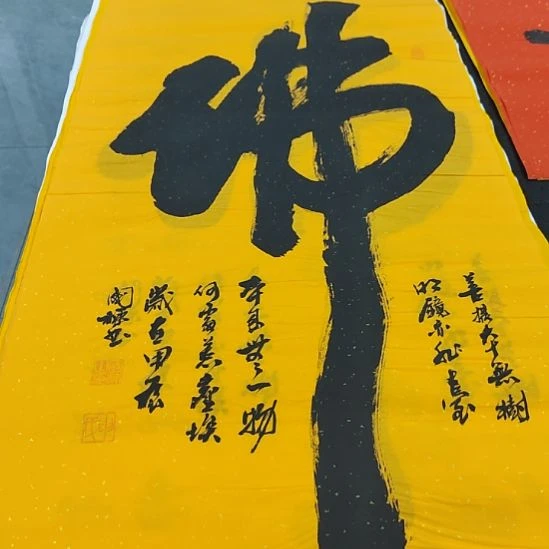 佛
菩提本無樹
明鏡亦非臺
本來無一物
何處惹塵埃
歲在甲辰